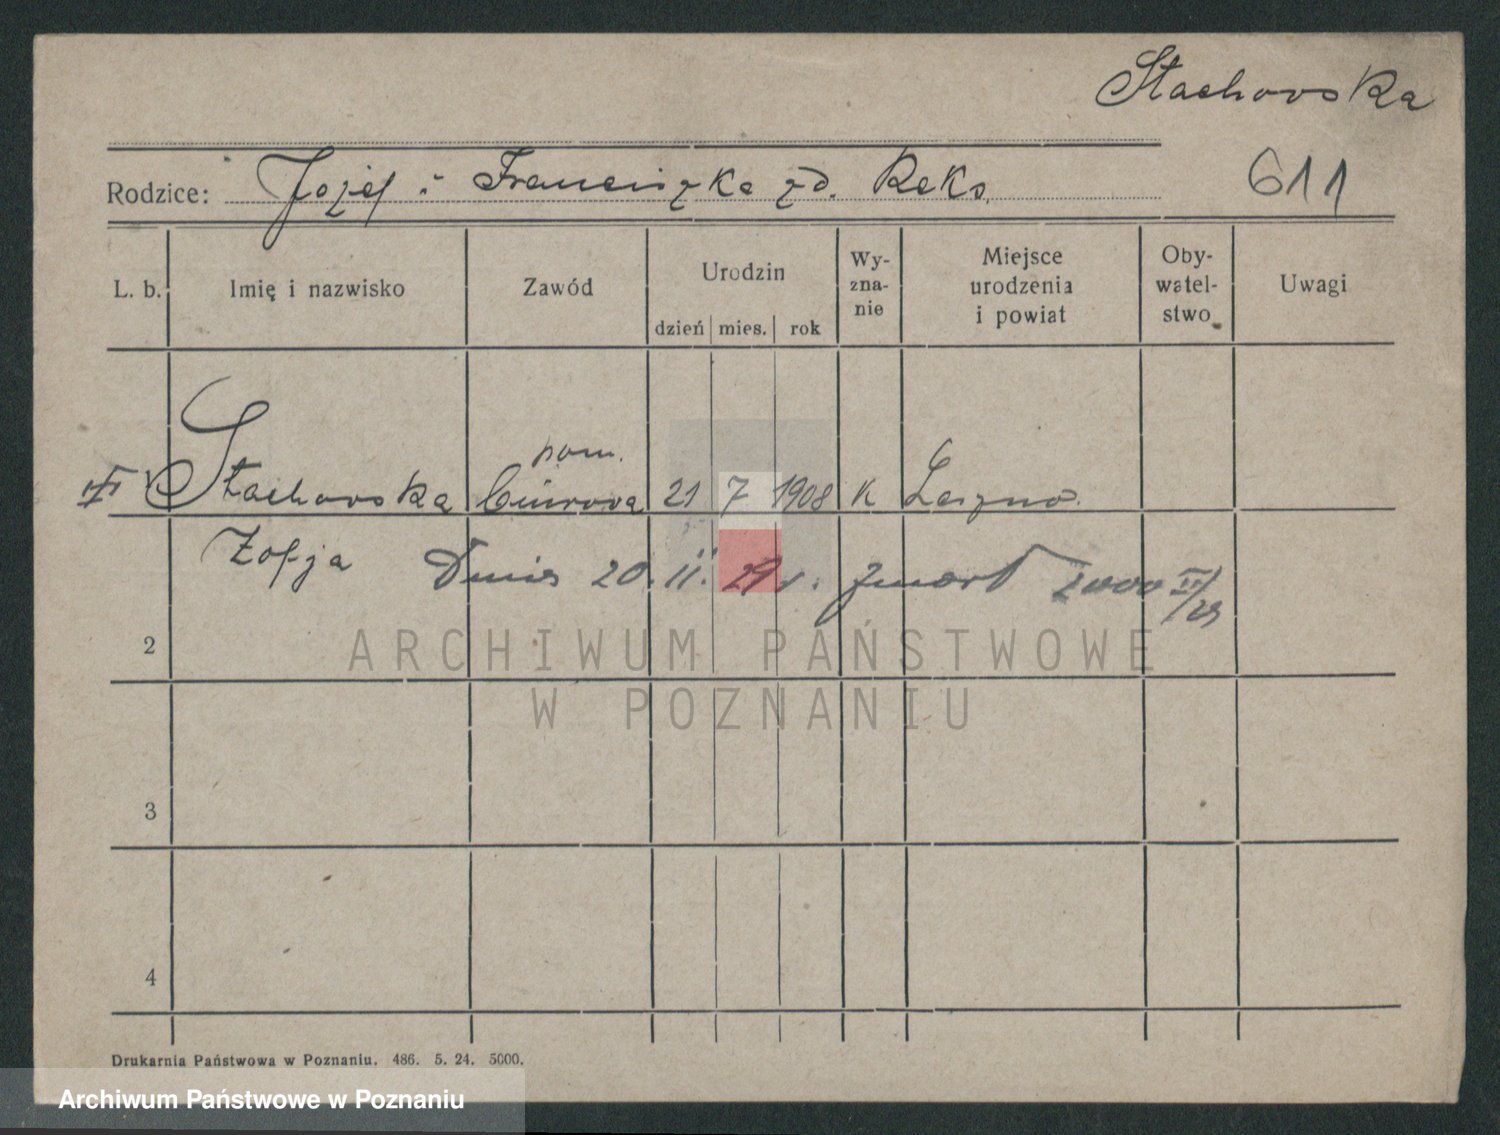 Stachovska
Rodzice: Józef i Franciszka zd. Reks.
611
L. b. Imię i nazwisko Zawód Urodzin dzień mies. rok Wy-zna-nie Miejsce urodzenia i powiat Oby-watel-stwo Uwagi
pom.
Stachovska biurova 21 7 1908 k Leszno.
Zofja Dnia 20. 11. 29 r. zmarł
2
ARCHIWUM PAŃSTWOWE
W POZNANIU
3
4
Drukarnia Państwowa w Poznaniu. 486. 5. 24. 5000.
Archiwum Państwowe w Poznaniu